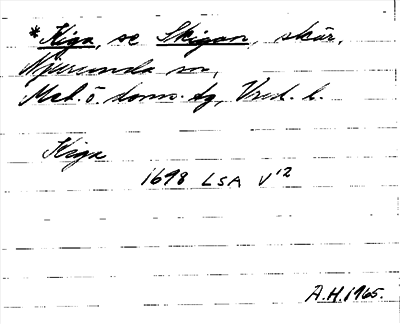 *Kiga, se Skigan, skär,
Njurunda sn,
Med. ö. doms. tg, Vnrl. l.
Kiga
1698 LSA V¹²
A.H.1965.